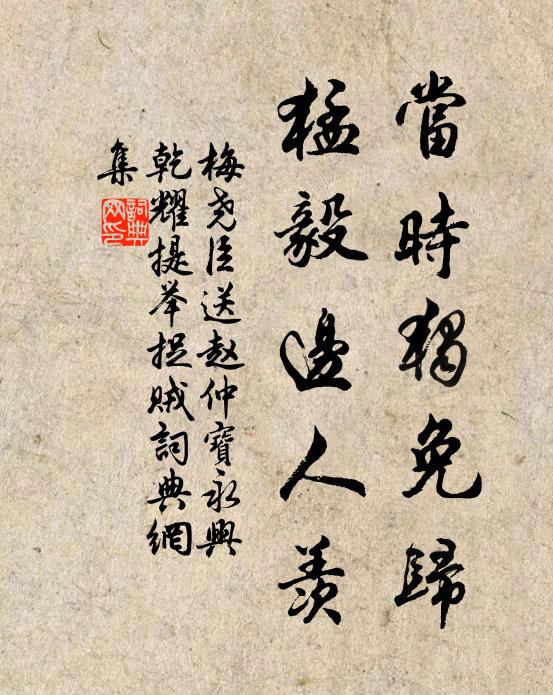 當時獨免歸
猛毅邊人羨
梅堯臣送赵仲寶永興
乾耀提举捉贼詞典網
集
詞典
网印